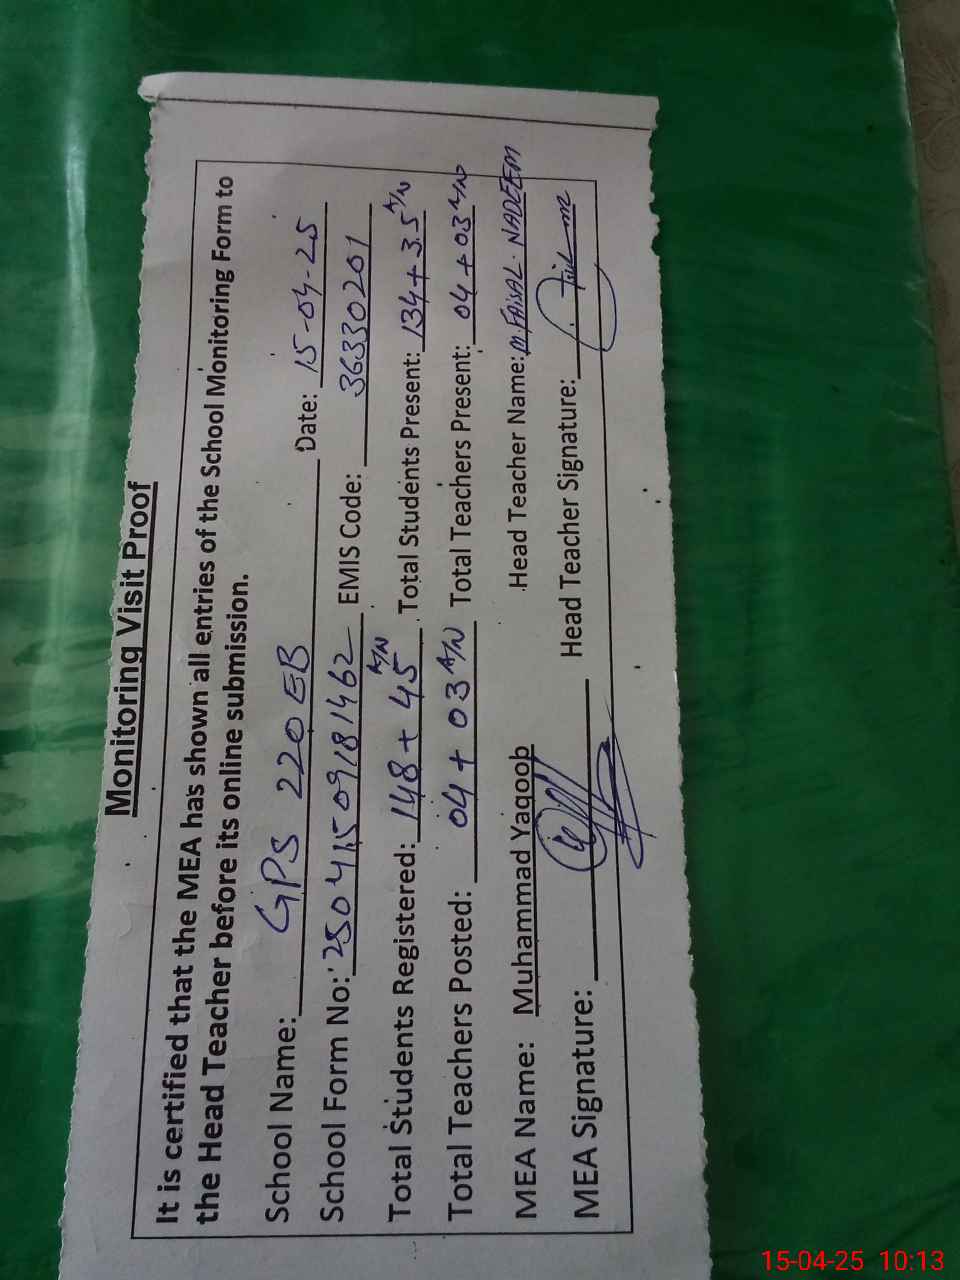 Monitoring Visit Proof
It is certified that the MEA has shown all entries of the School Monitoring Form to
the Head Teacher before its online submission.
School Name: GPS 220 EB Date: 15-04-25
School Form No: 25041509181462 EMIS Code: 36330201
Total Students Registered: 148 + 45 A/N Total Students Present: 134 + 35 A/N
Total Teachers Posted: 04 + 03 A/N Total Teachers Present: 04 + 03 A/N
MEA Name: Muhammad Yaqoob Head Teacher Name: M. FAISAL. NADEEM
MEA Signature: Head Teacher Signature:
15-04-25 10:13